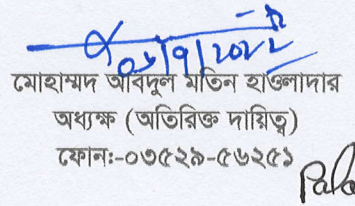 ০৬/9/2022
মোহাম্মদ আবদুল মতিন হাওলাদার
অধ্যক্ষ (অতিরিক্ত দায়িত্ব)
ফোন:-০৩৫২৯-৫৬২৫১